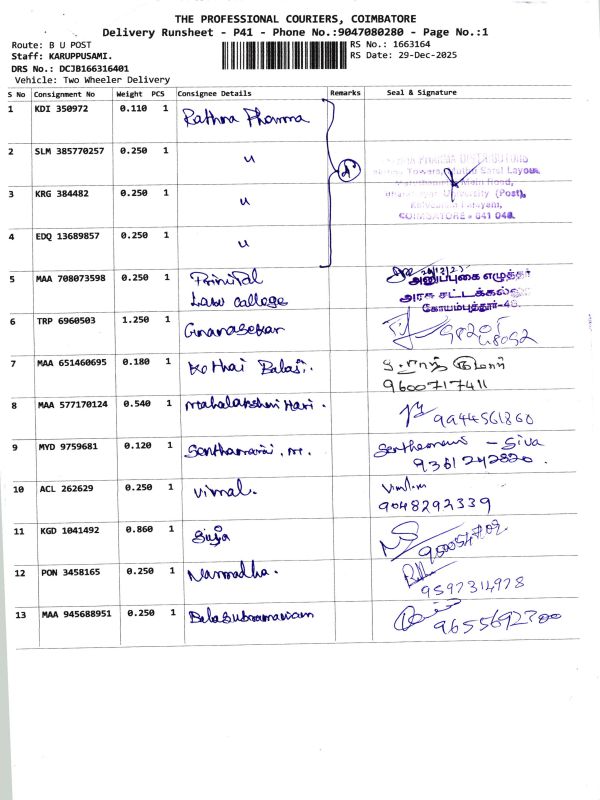 THE PROFESSIONAL COURIERS, COIMBATORE
Delivery Runsheet - P41 - Phone No.:9047080280 - Page No.:1
Route: B U POST
RS No.: 1663164
Staff: KARUPPUSAMI.
RS Date: 29-Dec-2025
DRS No.: DCJB166316401
Vehicle: Two Wheeler Delivery
S No Consignment No Weight PCS Consignee Details Remarks Seal & Signature
1 KDI 350972 0.110 1 Rathna Pharma
2 SLM 385770257 0.250 1 "
3 KRG 384482 0.250 1 "
4 EDQ 13689857 0.250 1 "
PHARMA DISTRIBUTORS
Towers, Muthu Layout,
Main Road,
University (Post),
COIMBATORE - 641 046.
5 MAA 708073598 0.250 1 Prinnipal
Law college
அனுப்புகை எழுத்தர்
அரசு சட்டக்கல்லூரி
கோயம்புத்தூர்-46.
6 TRP 6960503 1.250 1 Gnanasekar
7 MAA 651460695 0.180 1 Kothai Balaji.
9600717411
8 MAA 577170124 0.540 1 Mahalakshmi Hari.
9944561860
9 MYD 9759681 0.120 1 Senthamarai. M.
- Siva
9361242820.
10 ACL 262629 0.250 1 Vimal.
9048292339
11 KGD 1041492 0.860 1
12 PON 3458165 0.250 1 Narmadha.
9597314978
13 MAA 945688951 0.250 1 Balasubramaniam
9655692300